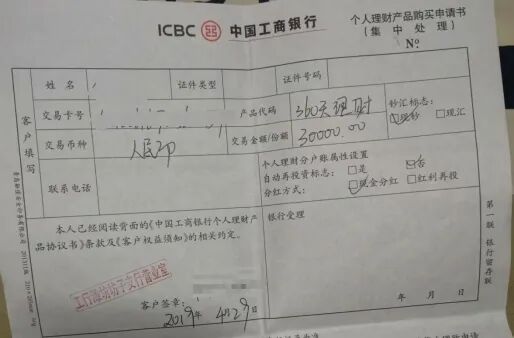 ICBC 中国工商银行
个人理财产品购买申请书
(集中处理)
No:
客户填写
姓名
证件类型
证件号码
交易卡号
产品代码
360天理财
钞汇标志:
现钞 现汇
交易币种
人民币
交易金额/份额
30000.00
联系电话
个人理财分户账属性设置
自动再投资标志: 是 否
分红方式: 现金分红 红利再投
本人已经阅读背面的《中国工商银行个人理财产
品协议书》条款及《客户权益须知》的相关约定。
银行受理
客户签章:
2019年 4月29日
年 月 日
第一联 银行留存联